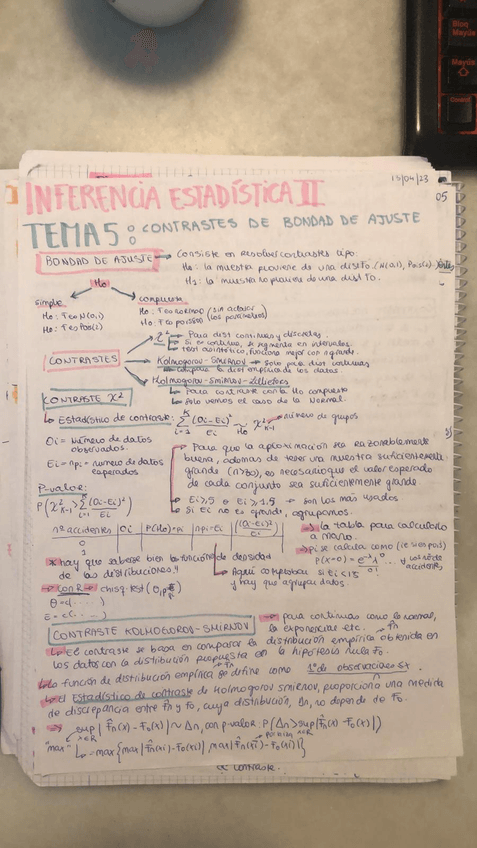 Bloq
Mayús
Mayús
Control
15/04/23
INFERENCIA ESTADÍSTICA II
05
TEMA 5: CONTRASTES DE BONDAD DE AJUSTE
BONDAD DE AJUSTE → Consiste en resolver contrastes tipo:
H0: la muestra proviene de una dist F0. (N(0,1), Pois(2)...)
H1: la muestra no proviene de una dist F0.
H0
simple
compuesta
H0: F es N(0,1)
H0: F es Pois(2)
H0: F es normal (sin aclarar
H0: F es poisson (los parámetros)
CONTRASTES
χ² → Para dist continuas y discretas
Si es continua, se segmenta en intervalos.
Test asintótico, funciona mejor con n grande.
Kolmogorov-Smirnov → Solo para dist continuas
Compara la dist empírica de los datos.
Kolmogorov-Smirnov-Lilliefors
Para contraste con la H0 compuesta
Solo vemos el caso de la Normal.
CONTRASTE χ²
Estadístico de contraste: Σ (Oi-Ei)²/Ei ~ χ²k-1 número de grupos
Oi = número de datos observados.
Ei = npi = número de datos esperados
Para que la aproximación sea razonablemente
buena, además de tener una muestra suficientemente
grande (n>30), es necesario que el valor esperado
de cada conjunto sea suficientemente grande.
Ei≥5 o Ei≥1.5 → son los más usados
Si Ei no es grande, agrupamos.
P-valor:
P(χ²k-1 > Σ (Oi-Ei)²/Ei)
nº accidentes | Oi | P(X=i)=pi | npi=Ei | (Oi-Ei)²/Ei
0
1
→ la tabla para calcularlo
a mano.
pi se calcula como (si es pois)
P(X=0) = e^-λ λ^0 / 0!
accidentes
* hay que saberse bien la función de densidad
de las distribuciones!
Aquí comprobar si Ei<1.5
y hay que agrupar datos.
→ Con R → chisq.test(O, p=
O = c(....)
E = c(....)
CONTRASTE KOLMOGOROV-SMIRNOV → para continuas como la normal,
la exponencial etc.
El contraste se basa en comparar la distribución empírica obtenida en
los datos con la distribución propuesta en la hipótesis nula F0.
La función de distribución empírica se define como 1º de observaciones ≤x
n
El Estadístico de contraste de Kolmogorov Smirnov, proporciona una medida
de discrepancia entre F̂n y F0, cuya distribución, Δn, no depende de F0.
sup |F̂n(x) - F0(x)| ~ Δn, con p-valor P(Δn > sup |F̂n(x) - F0(x)|)
x∈R
"max" → = max{max|F̂n(xi) - F0(xi)|, max|F̂n(xi) - F0(xi)|}
contraste.